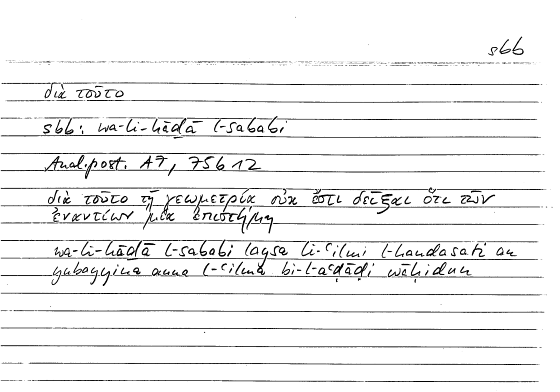 sbb
διὰ τοῦτο
sbb: wa-li-hāḏā l-sababi
Anal.post. A7, 75b12
διὰ τοῦτο τῇ γεωμετρίᾳ οὐκ ἔστι δεῖξαι ὅτι τῶν
ἐναντίων μία ἐπιστήμη
wa-li-hāḏā l-sababi laysa li-ʿilmi l-handasati an
yubayyina anna l-ʿilma bi-l-aḍdādi wāḥidun